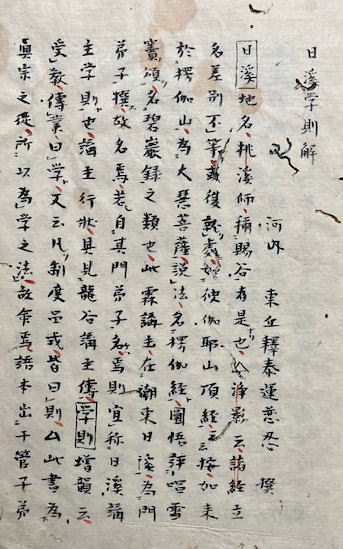 日溪学則解
河内 東丘釋泰運恵忍 撰
日溪 地名桃溪師稱賜谷者是也 浄影云諸経立
名差別不等或復就處如彼伽耶山頂経云云接如来
於楞伽山為大慧菩薩説法名楞伽経圜悟評唱雪
竇頌名碧巖録之類也此霖講主在湖東日溪為門
弟子撰故名焉若自其門弟子名焉則宜称日溪講
主学則也講主行状具見龍谷講主傳 学則 增韻云
受教傳業曰学又云凡制度品式皆曰則 此書為
真宗之徒所以為学之法故名焉語本出于管子弟